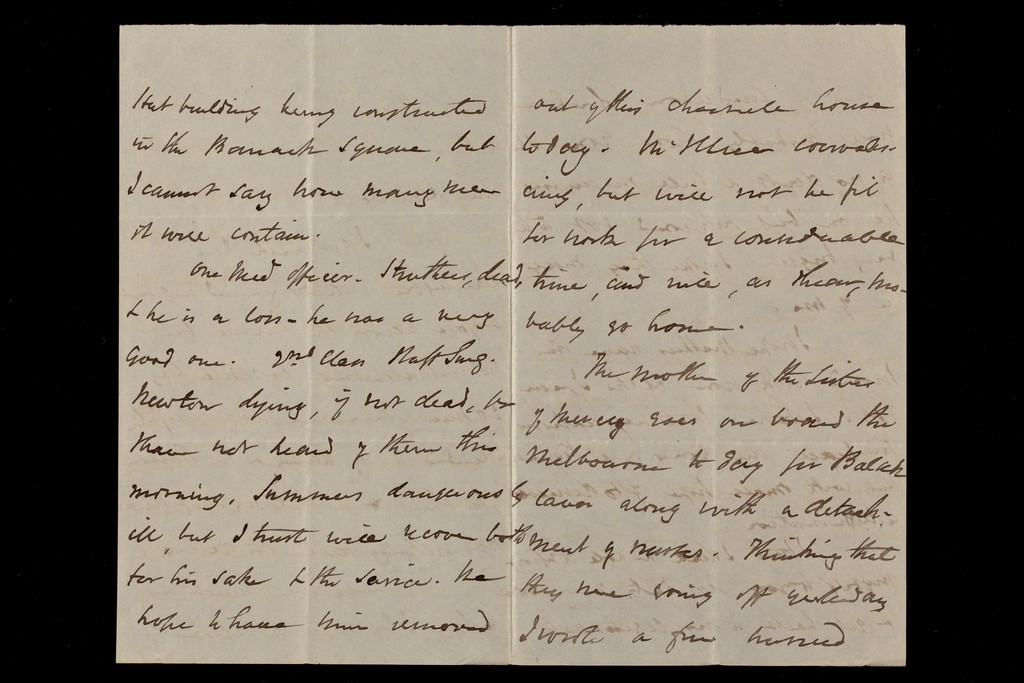 Hut building being constructed
in the Barrack Square, but
I cannot say how many men
it will contain.
One Med officer. Struthers, dead,
& he is a loss - he was a very
good one. 2nd Class Staff Surg.
Newton dying, if not dead, for
I have not heard of them this
morning. Summers dangerously
ill, but I trust will recover both
for his sake & the service. We
hope to have him removed
out of this charnele house
to day. convales-
cing, but will not be fit
for work for a considerable
time, and will, as I hear, pro-
bably go home.
The Mother of the Sisters
of Mercy goes on board the
Melbourne to day for Balack
lava along with a detach-
ment of nurses. Thinking that
they were going off yesterday
I wrote a few hurried